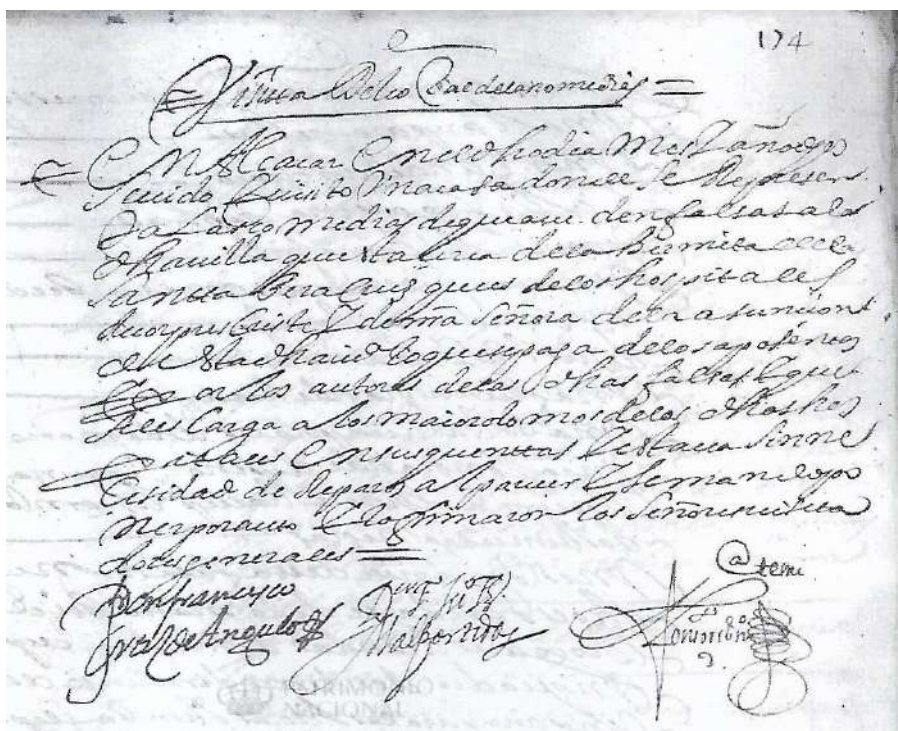 174
Visitta De la Cassa de las comedias
En Alcaçar En el dho dia Mes Y año dho
Se Visito Una casa donde Se Represen
tan Las comedias de que a la
dha uilla que esta cerca de la Hermita de la
Santta Vera Cruz que es de los hospitales
de corpus criste Y de nra Señora de la asuncion
de esta dha uilla Lo que se paga de los aposentos
Por los autores de las dhas Y que
se les Carga a los maiordomos de los dhos hos
Pitales En sus quenttas Y estaua Sin ne
cesidad de Reparos al parecer Y se mando po
ner por auto Y lo firmaron los Señores visita
dores generales
Don francisco
de Angulo
Malpartida
Ante mi
PATRIMONIO
NACIONAL